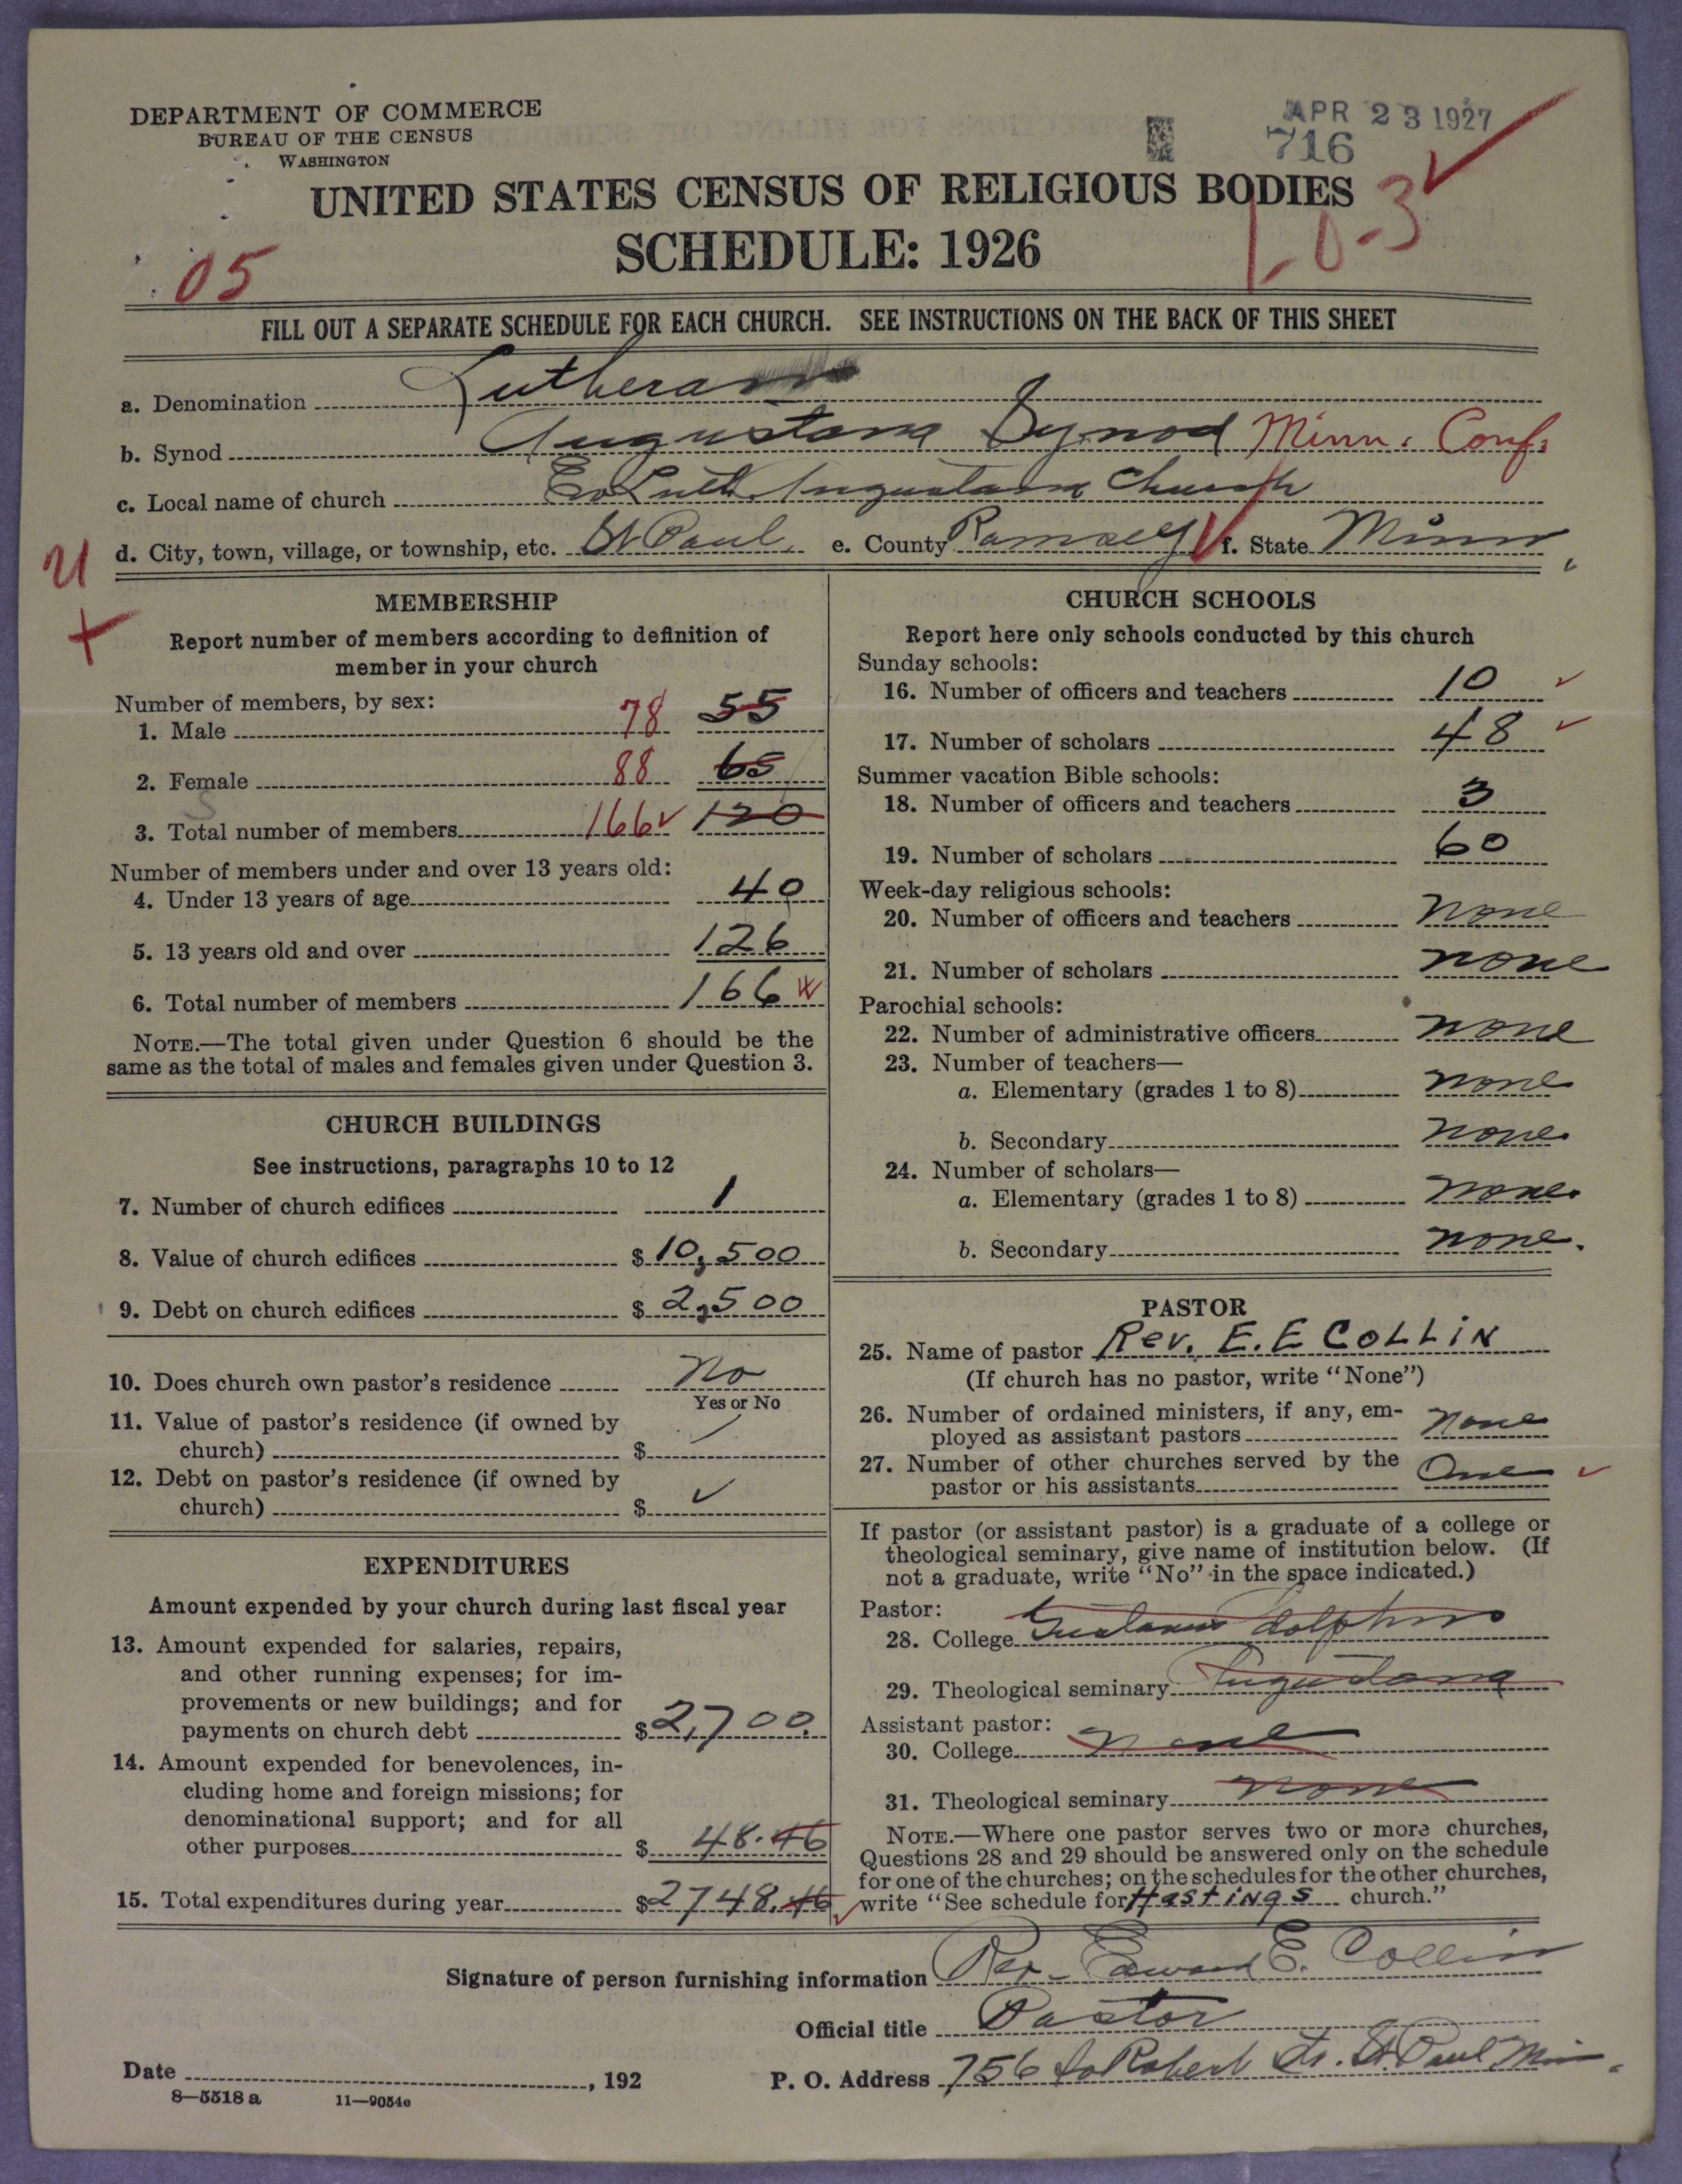 DEPARTMENT OF COMMERCE
BUREAU OF THE CENSUS
WASHINGTON
APR 23 1927
716
UNITED STATES CENSUS OF RELIGIOUS BODIES
SCHEDULE: 1926
05
1-0-3
FILL OUT A SEPARATE SCHEDULE FOR EACH CHURCH. SEE INSTRUCTIONS ON THE BACK OF THIS SHEET
a. Denomination Lutheran
b. Synod Augustana Synod Minn. Conf.
c. Local name of church Ev Luth. Augustana Church
d. City, town, village, or township, etc. St Paul, e. County Ramsey f. State Minn
MEMBERSHIP
Report number of members according to definition of
member in your church
Number of members, by sex:
1. Male 78 55
2. Female 88 65
3. Total number of members 166 ✓ 120
Number of members under and over 13 years old:
4. Under 13 years of age 40
5. 13 years old and over 126
6. Total number of members 166
NOTE.—The total given under Question 6 should be the
same as the total of males and females given under Question 3.
CHURCH BUILDINGS
See instructions, paragraphs 10 to 12
7. Number of church edifices 1
8. Value of church edifices $10,500
9. Debt on church edifices $2,500
10. Does church own pastor's residence No
Yes or No
11. Value of pastor's residence (if owned by
church) $
12. Debt on pastor's residence (if owned by
church) $ ✓
EXPENDITURES
Amount expended by your church during last fiscal year
13. Amount expended for salaries, repairs,
and other running expenses; for im-
provements or new buildings; and for
payments on church debt $2,700.
14. Amount expended for benevolences, in-
cluding home and foreign missions; for
denominational support; and for all
other purposes $ 48.46
15. Total expenditures during year $2748.46 ✓
CHURCH SCHOOLS
Report here only schools conducted by this church
Sunday schools:
16. Number of officers and teachers 10 ✓
17. Number of scholars 48 ✓
Summer vacation Bible schools:
18. Number of officers and teachers 3
19. Number of scholars 60
Week-day religious schools:
20. Number of officers and teachers none
21. Number of scholars none
Parochial schools:
22. Number of administrative officers none
23. Number of teachers—
a. Elementary (grades 1 to 8) none
b. Secondary none
24. Number of scholars—
a. Elementary (grades 1 to 8) none
b. Secondary none.
PASTOR
25. Name of pastor Rev. E. E COLLIN
(If church has no pastor, write "None")
26. Number of ordained ministers, if any, em-
ployed as assistant pastors none
27. Number of other churches served by the
pastor or his assistants One ✓
If pastor (or assistant pastor) is a graduate of a college or
theological seminary, give name of institution below. (If
not a graduate, write "No" in the space indicated.)
Pastor:
28. College Gustavus Adolphus
29. Theological seminary Augustana
Assistant pastor:
30. College none
31. Theological seminary none
NOTE.—Where one pastor serves two or more churches,
Questions 28 and 29 should be answered only on the schedule
for one of the churches; on the schedules for the other churches,
write "See schedule for Hastings church."
Signature of person furnishing information Rev. Edward E. Collin
Official title Pastor
Date , 192
P. O. Address 756 So Robert St. St. Paul Minn.
8—5518 a 11—9054e